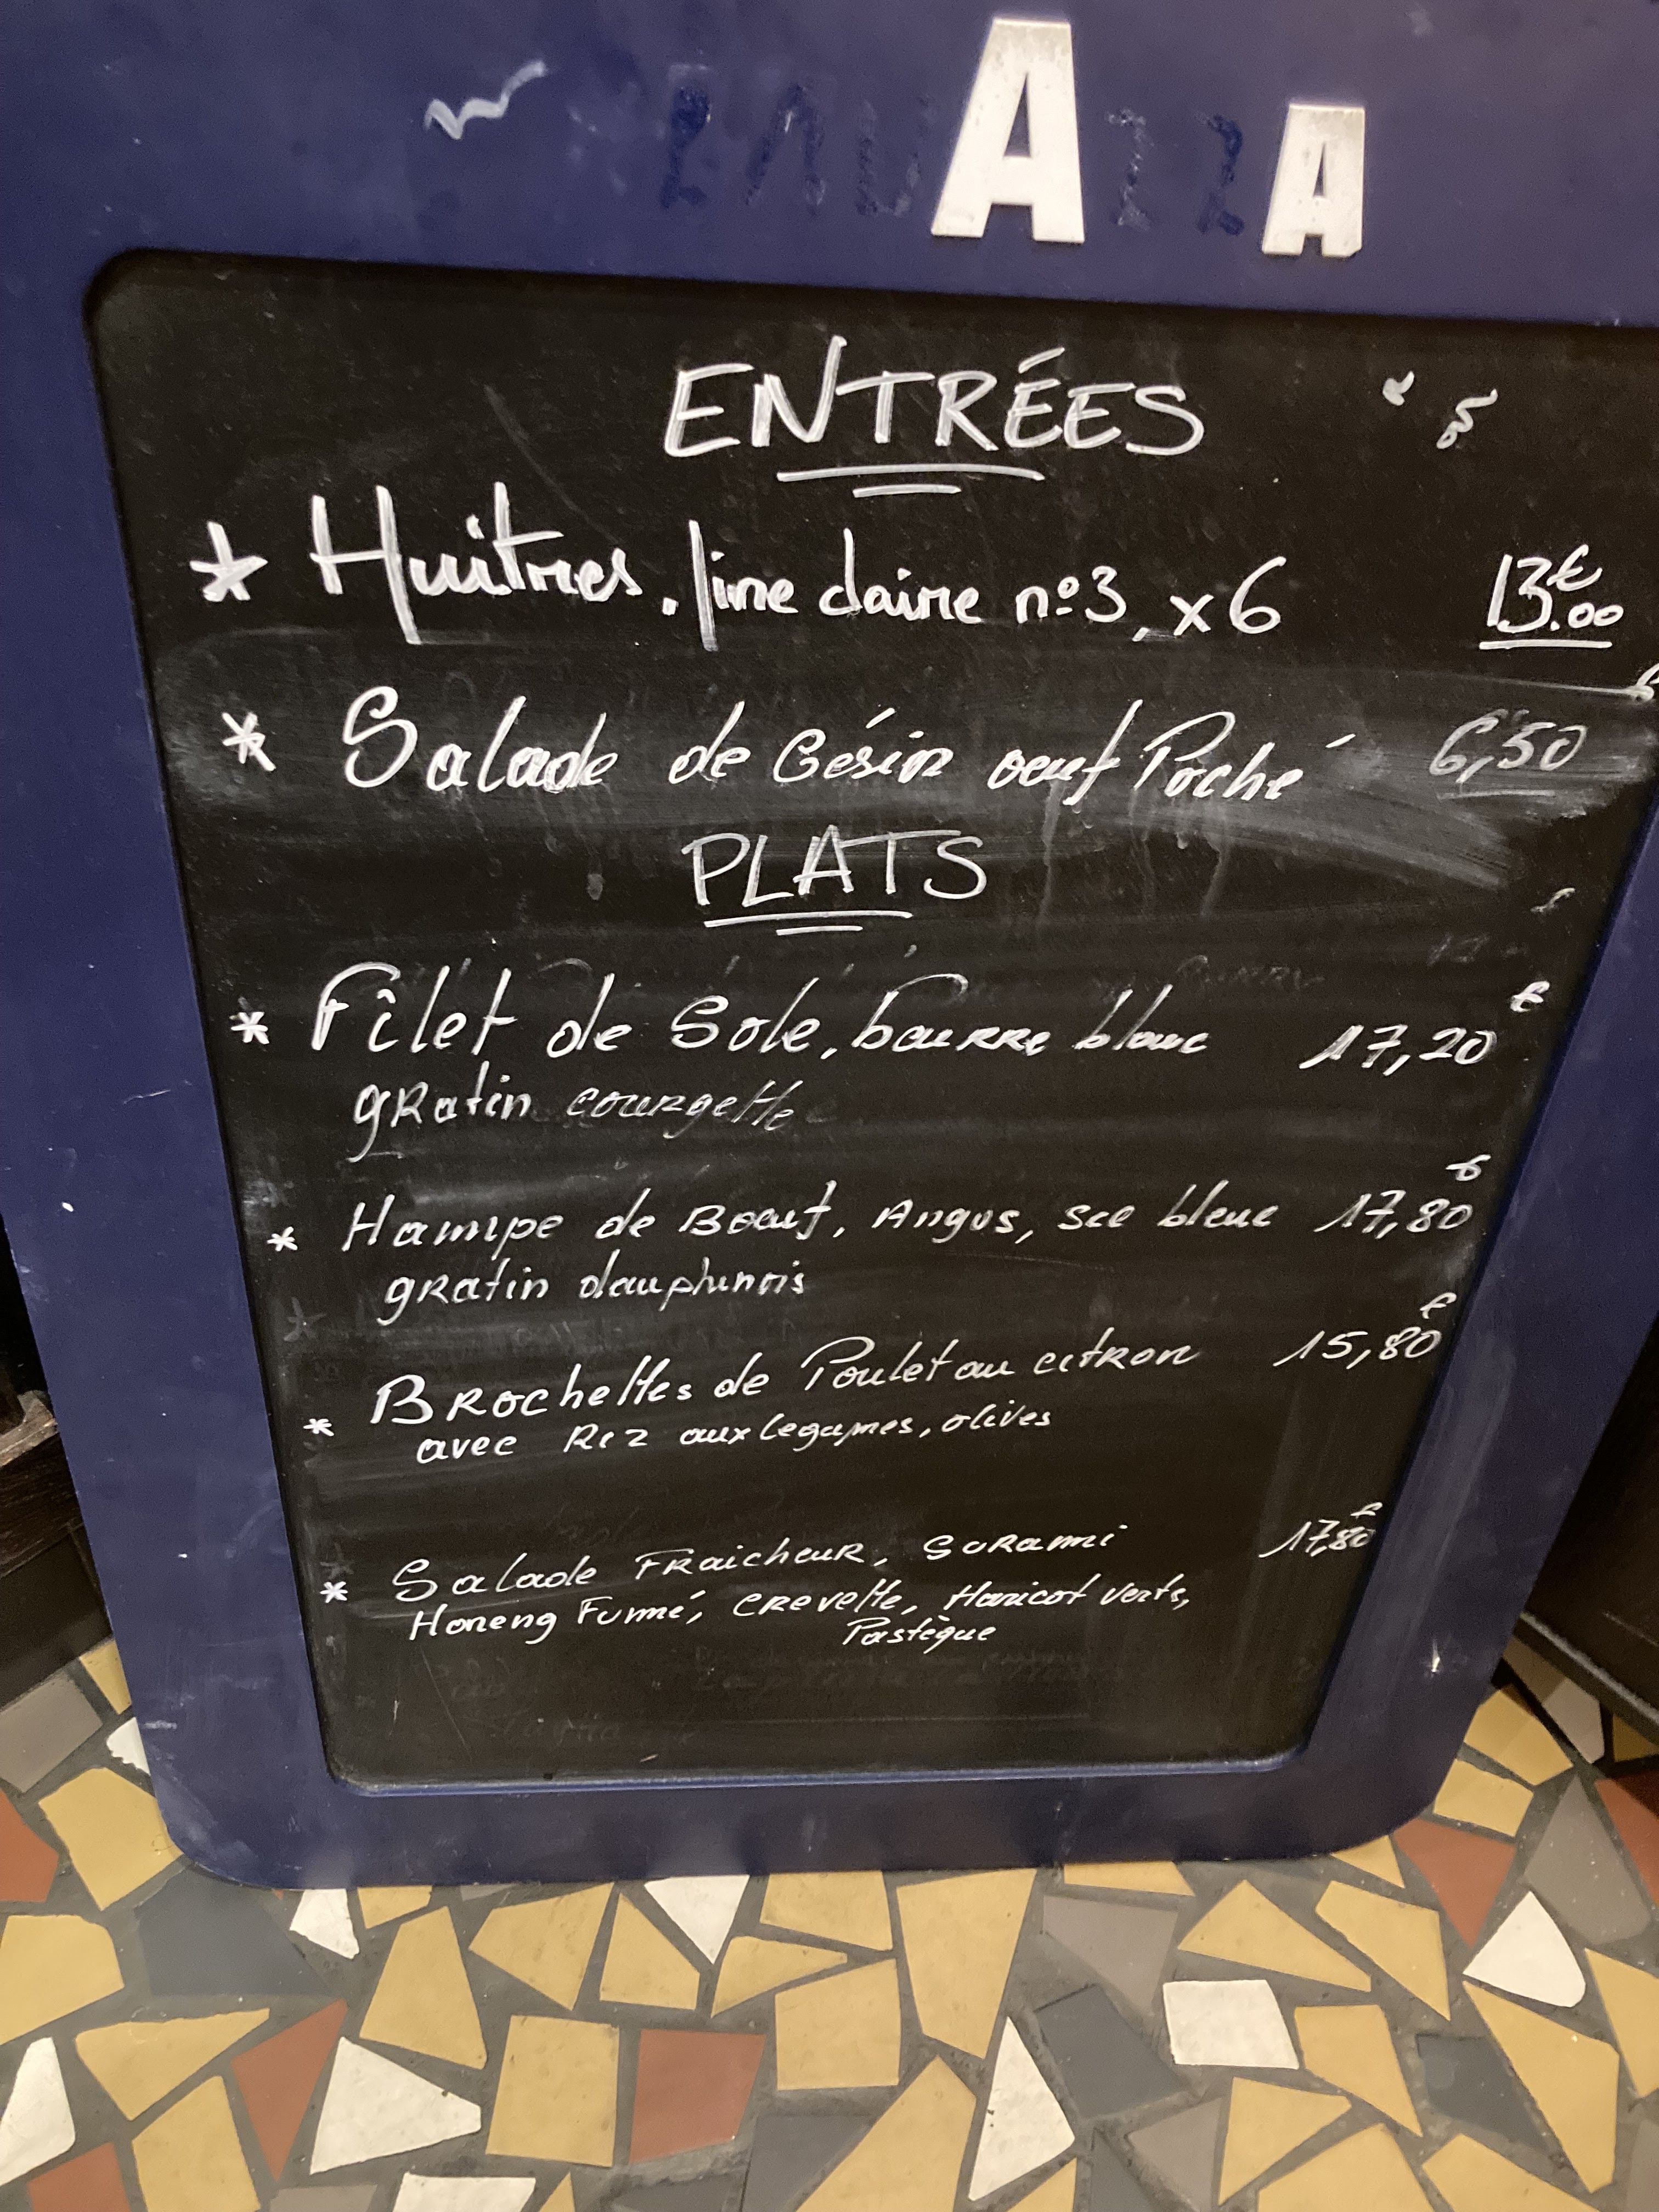 A A
ENTRÉES
* Huitres, fine claire n°3, x6 13€.00
* Salade de Gésier oeuf Poché 6,50
PLATS
* Filet de Sole, beurre blanc 17,20 €
gratin courgette
* Hampe de Boeuf, Angus, sce bleue 17,80 €
gratin dauphinois
* Brochettes de Poulet au citron 15,80 €
avec Riz aux legumes, olives
* Salade Fraicheur, Surami 17,80 €
Hareng Fumé, crevette, Haricot verts,
Pastèque